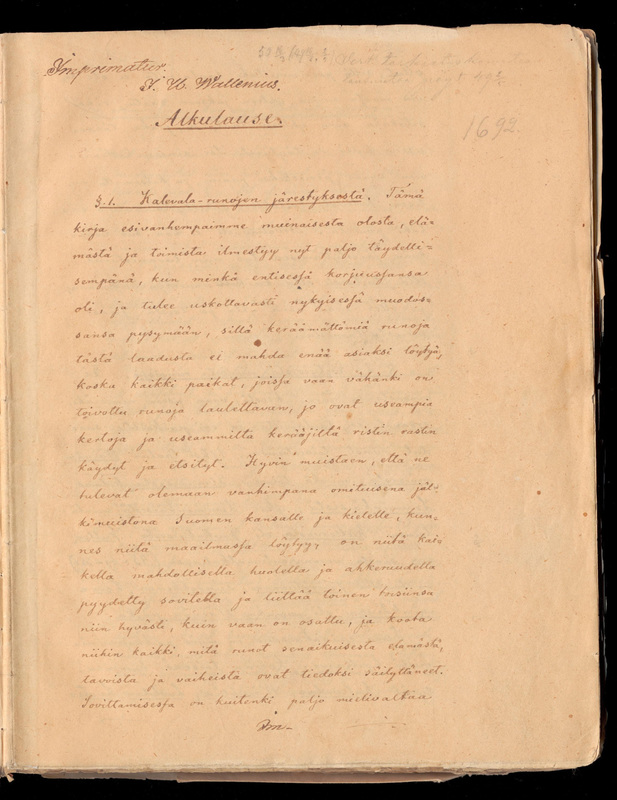 Imprimatur.
J. H. Wallenius.
1692.
Alkulause.
§. 1. Kalevala-runojen järestyksestä. Tämä
kirja esivanhempaimme muinaisesta olosta, elä=
mästä ja toimista ilmestyy nyt paljo täydelli=
sempänä, kun minkä entisessä korjuuossansa
oli, ja tulee uskottavasti nykyisessä muodos=
sansa pysymään, sillä keräämättömiä runoja
tästä laadusta ei mahda enää asiaksi löytyä,
koska kaikki paikat, joissa vaan vähänki on
toivottu runoja laulettavan, jo ovat useampia
kertoja ja useammilta kerääjiltä ristin rastin
käydyt ja etsityt. Hyvin muistaen, että ne
tulevat olemaan vanhimpana omituisena jäl=
kimuistona Suomen kansalle ja kielelle, kun=
nes niitä maailmassa löytyy, on niitä kai=
kella mahdollisella huolella ja ahkeruudella
pyydetty sovitella ja liittää toinen toisiinsa
niin hyvästi, kuin vaan on osattu, ja koota
niihin kaikki, mitä runot senaikuisesta elämästä,
tavoista ja vaiheista ovat tiedoksi säilyttäneet.
Sovittamisessa on kuitenki paljo mielivaltaa